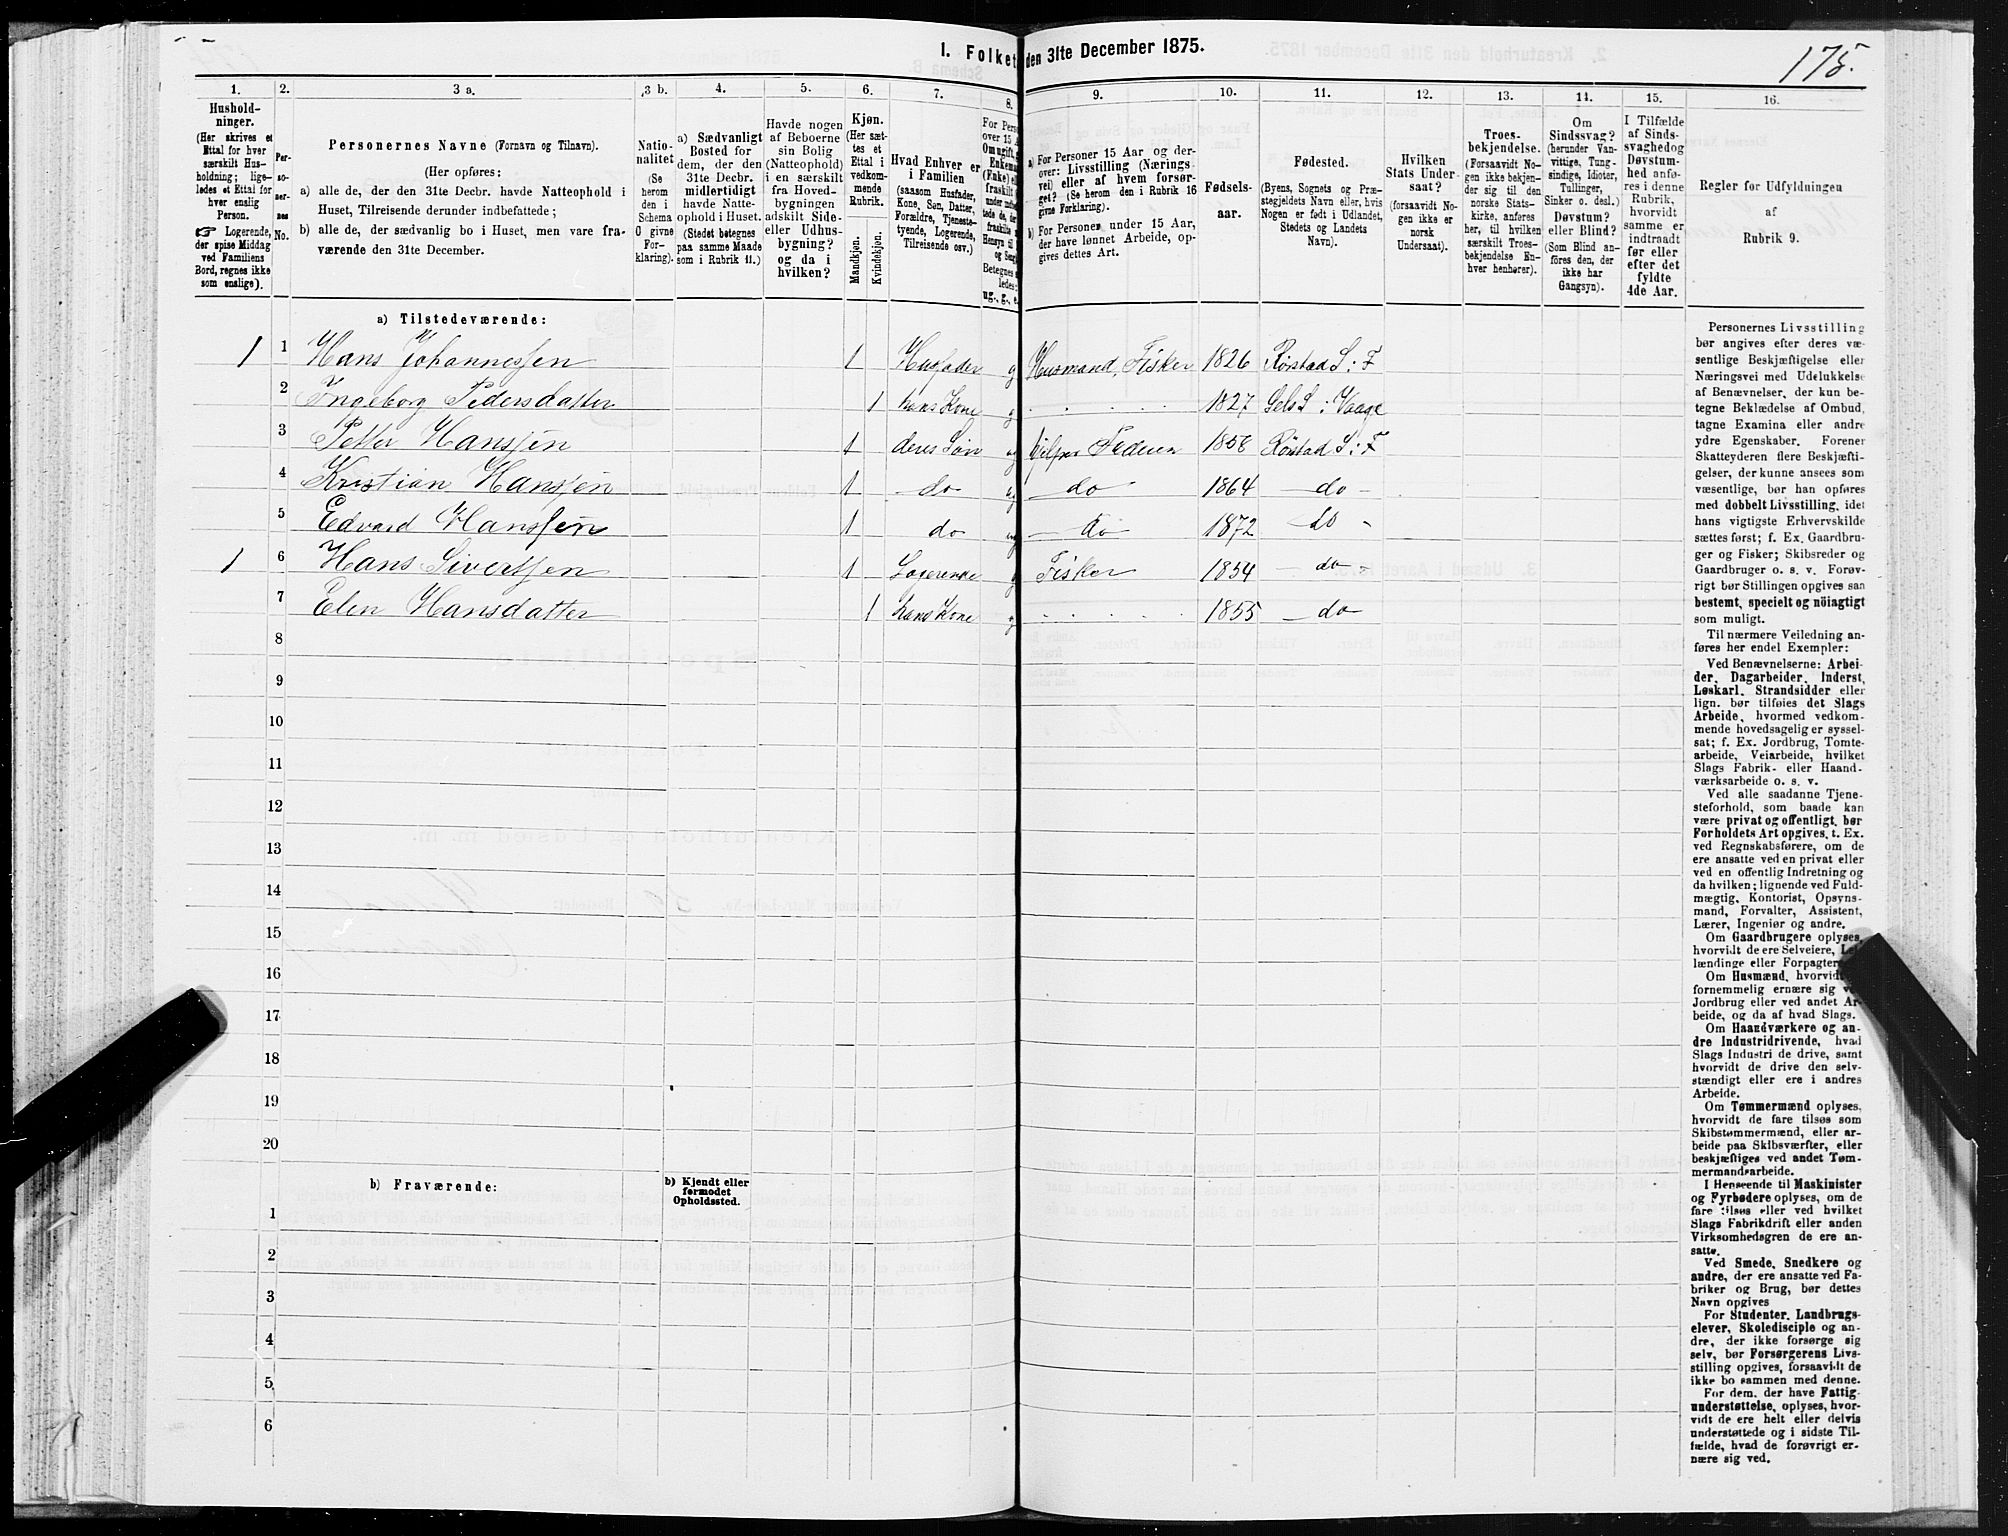 175.
I. Folket den 31te December 1875.
1.
Hushold-
ninger.
(Her skrives et
Ettal for hver
særskilt Hus-
holdning; lige-
ledes et Ettal for
hver enslig
Person.
☞ Logerende,
der spise Middag
ved Familiens
Bord, regnes ikke
som enslige).
2.
Per-
so-
ner-
nes
No.
3 a.
Personernes Navne (Fornavn og Tilnavn).
(Her opføres:
a) alle de, der den 31te Decbr. havde Natteophold i
Huset, Tilreisende derunder indbefattede;
b) alle de, der sædvanlig bo i Huset, men vare fra-
værende den 31te December.
3 b.
Natio-
nalitet
(Se
herom
den i
Schema
O givne
For-
klaring).
4.
a) Sædvanligt
Bosted for
dem, der den
31te Decbr.
midlertidigt
havde Natte-
ophold i Huset.
(Stedet betegnes
paa samme Maade
som i Rubrik 11.)
5.
Havde nogen
af Beboerne
sin Bolig
(Natteophold)
i en særskilt
fra Hoved-
bygningen
adskilt Side-
eller Udhus-
bygning?
og da i
hvilken?
6.
Kjøn.
(Her sæt-
tes et
Ettal i
vedkom-
mende
Rubrik.
Mandkjøn.
Kvindekjøn.
7.
Hvad Enhver er
i Familien
(saasom Husfader,
Kone, Søn, Datter,
Forældre, Tjeneste-
tyende, Logerende,
Tilreisende osv.)
8.
For Pers
over 15 A
Om ugift,
Enkema
(Enke) el
fraskilt
Betegnes
ledes:
ug., g., e.
9.
a) For Personer 15 Aar og der-
over: Livsstilling (Nærings-
vei) eller af hvem forsør-
get? (Se herom den i Rubrik 16
givne Forklaring).
b) For Personer under 15 Aar,
der have lønnet Arbeide, op-
gives dettes Art.
10.
Fødsels-
aar.
11.
Fødested.
(Byens, Sognets og Præ-
stegjeldets Navn eller, hvis
Nogen er født i Udlandet,
Stedets og Landets
Navn).
12.
Hvilken
Stats Under-
saat?
(forsaavidt No-
gen ikke er
norsk
Undersaat).
13.
Troes-
bekjendelse.
(Forsaavidt No-
gen ikke bekjen-
der sig til den
norske Stats-
kirke, anføres
her, til hvilken
særskilt Troes-
bekjendelse En-
hver henhører).
14.
Om
Sindssvag?
(herunder Van-
vittige, Tung-
sindige, Idioter,
Tullinger,
Sinker o. desl.)
Døvstum?
eller Blind?
(Som Blind an-
föres den, der
ikke har
Gangsyn).
15.
I Tilfælde
af Sinds-
svaghed og
Døvstum-
hed anfø-
res i denne
Rubrik,
hvorvidt
samme er
indtraadt
før eller
efter det
fyldte
4de Aar.
16.
Regler for Udfyldningen
af
Rubrik 9.
a) Tilstedeværende:
1 1 Hans Johannessen 1 Husfader g Husmand, Fisker 1826 Rørstad S: F
2 Ingeborg Pedersdatter 1 hans Kone g 1827 Sels S: Vaage
3 Petter Hanssen 1 deres Søn ug hjelper Faderen 1858 Rörstad S: F
4 Kristian Hanssen 1 do ug do 1864 do
5 Edvard Hanssen 1 do ug do 1872 do
1 6 Hans Sivertsen 1 Logerende g Fisker 1854 do
7 Elen Hansdatter 1 hans Kone g 1855 do
8
9
10
11
12
13
14
15
16
17
18
19
20
b) Fraværende:
b) Kjendt eller
formodet
Opholdssted.
1
2
3
4
5
6
Personernes Livsstilling
bør angives efter deres væ-
sentlige Beskjæftigelse eller
Næringsvei med Udelukkelse
af Benævnelser, der kun be-
tegne Beklædelse af Ombud,
tagne Examina eller andre
ydre Egenskaber. Forener
Skatteyderen flere Beskjæfti-
gelser, der kunne ansees som
væsentlige, bør han opføres
med dobbelt Livsstilling, idet
hans vigtigste Erhvervskilde
sættes først; f. Ex. Gaardbru-
ger og Fisker; Skibsreder og
Gaardbruger o. s. v. Forøv-
rigt bør Stillingen opgives saa
bestemt, specielt og nöiagtigt
som muligt.
Til nærmere Veiledning an-
føres her endel Exempler:
Ved Benævnelserne: Arbei-
der, Dagarbeider, Inderst,
Løskarl, Strandsidder eller
lign. bør tilføies det Slags
Arbeide, hvormed vedkom-
mende hovedsagelig er syssel-
sat; f. Ex. Jordbrug, Tomte-
arbeide, Veiarbeide, hvilket
Slags Fabrik- eller Haand-
værksarbeide o. s. v.
Ved alle saadanne Tjene-
steforhold, som baade kan
være privat og offentligt, bør
Forholdets Art opgives, t. Ex.
ved Regnskabsførere, om de
ere ansatte ved en privat eller
ved en offentlig Indretning og
da hvilken; lignende ved Fuld-
mægtig, Kontorist, Opsyns-
mand, Forvalter, Assistent,
Lærer, Ingeniør og andre.
Om Gaardbrugere oplyses,
hvorvidt de ere Selveiere, Lei-
lændinge eller Forpagtere.
Om Husmænd, hvorvidt
fornemmelig ernære sig ved
Jordbrug eller ved andet Ar-
beide, og da af hvad Slags.
Om Haandværkere og an-
dre Industridrivende, hvad
Slags Industri de drive, samt
hvorvidt de drive den selv-
stændigt eller ere i andres
Arbeide.
Om Tømmermænd oplyses,
hvorvidt de fare tilsøs som
Skibstømmermænd, eller ar-
beide paa Skibsværfter, eller
beskjæftiges ved andet Tøm-
mermandsarbeide.
I Henseende til Maskinister
og Fyrbødere oplyses, om de
fare tilsøs eller ved hvilket
Slags Fabrikdrift eller anden
Virksomhedsgren de ere an-
satte.
Ved Smede, Snedkere og
andre, der ere ansatte ved Fa-
briker og Brug, bør dettes
Navn opgives
For Studenter, Landbrugs-
elever, Skoledisciple og an-
dre, der ikke forsørge sig
selv, bør Forsørgerens Livs-
stilling opgives, forsaavidt de
ikke bo sammen med denne.
For dem, der have Fattig-
understøttelse, oplyses, hvor-
vidt de ere helt eller delvis
understøttede og i sidste Til-
fælde, hvad de forøvrigt er-
nære sig ved.